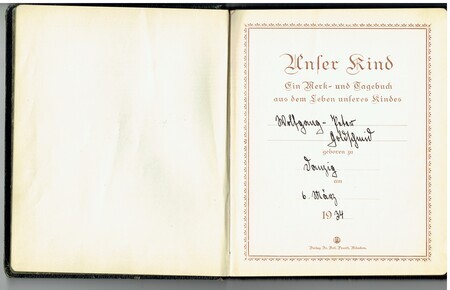 Unser Kind
Ein Merk- und Tagebuch
aus dem Leben unseres Kindes
Wolfgang-Peter
Goldschmid
geboren zu
Danzig
am
6. März
1934